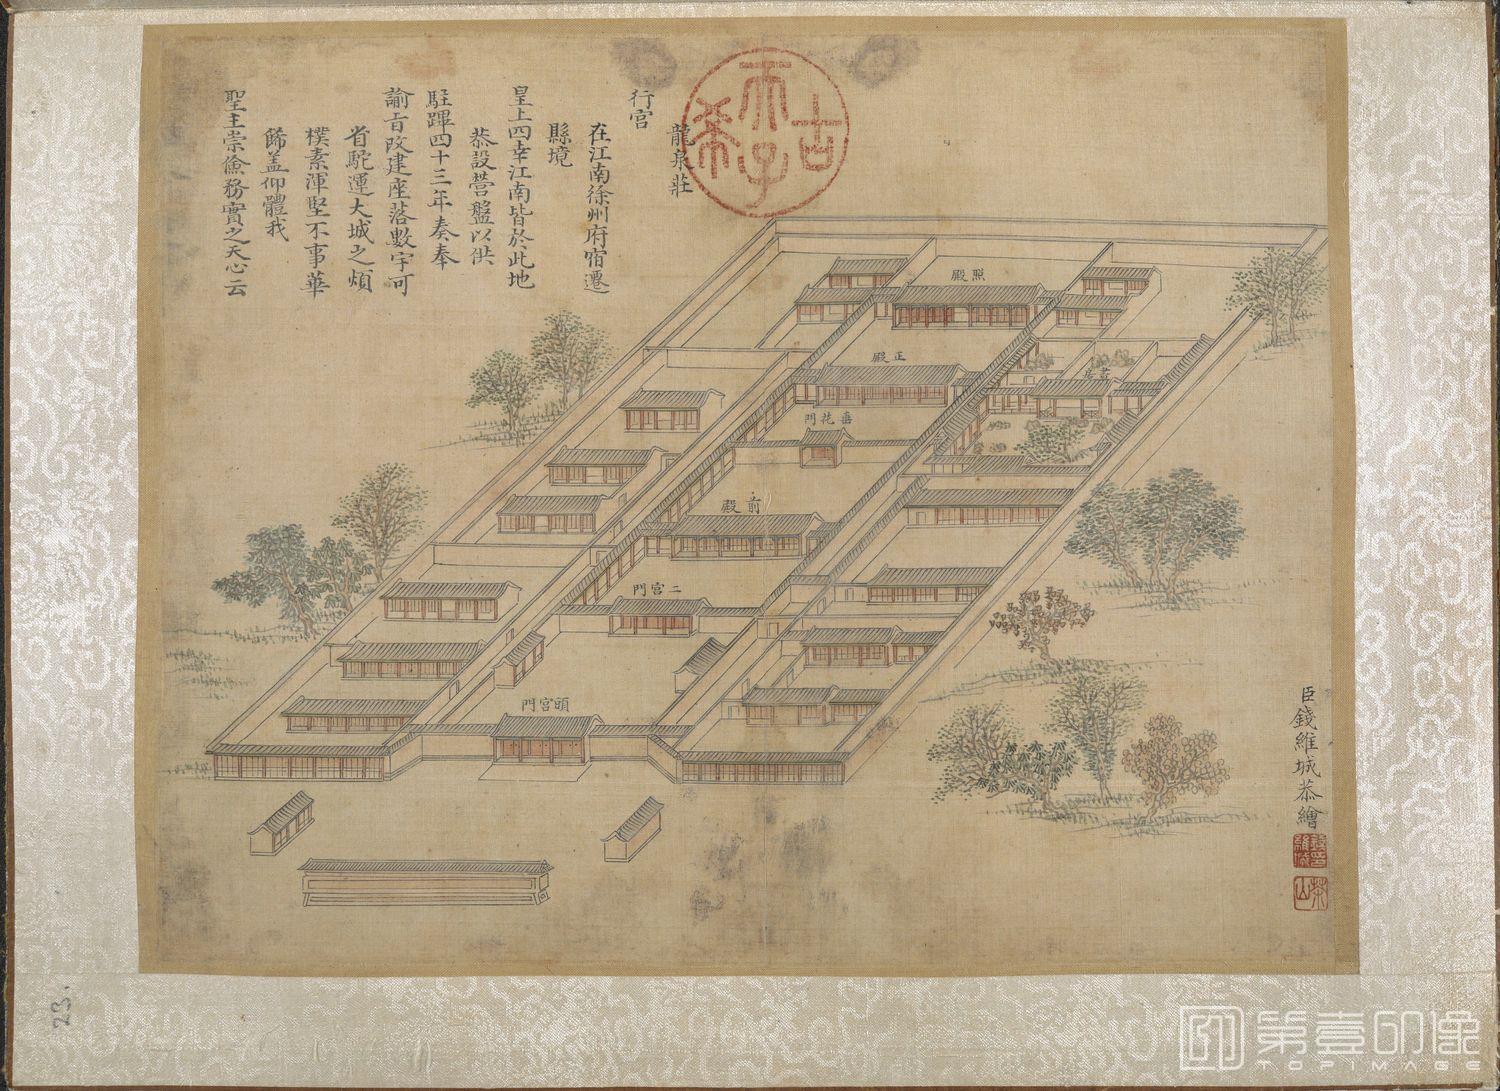 龍泉莊
行宮
在江南徐州府宿遷
縣境
皇上四幸江南皆於此地
恭設營盤以供
駐蹕四十三年奏奉
諭旨改建座落數宇可
省駝運大城之煩
樸素渾堅不事華
飾蓋仰體我
聖主崇儉務實之天心云
古
天子
希
照殿
正殿
書房
垂花門
前殿
二宮門
頭宮門
臣錢維城恭繪
臣錢
維城
茶山
23.
第壹印像
TOPIMAGE